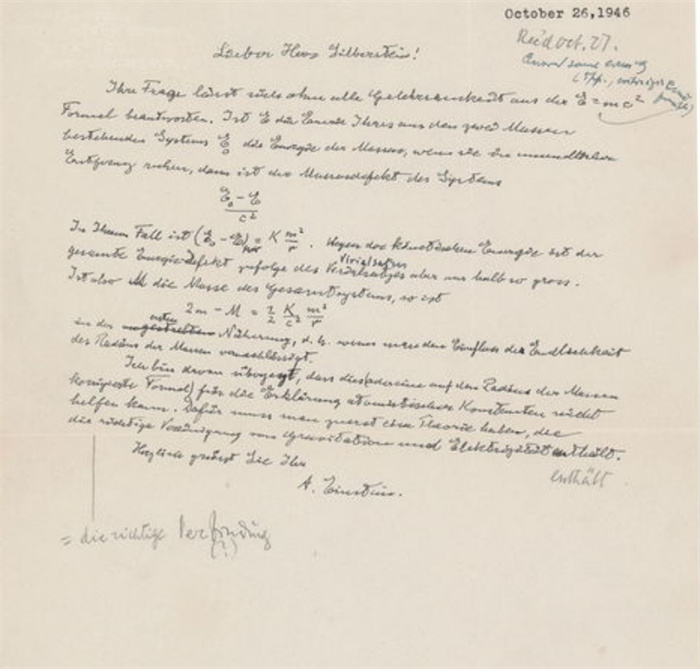 October 26, 1946
Rec'd Oct. 27.
Lieber Herr Silberstein!
Ihre Frage lässt sich ohne alle Gelehrsamkeit aus der E = mc²
Formel beantworten. Ist E die Energie Ihres aus den zwei Massen
bestehenden Systems E₀ die Energie der Massen, wenn sie in unendlicher
Entfernung ruhen, dann ist der Massendefekt des Systems
E₀ – E
c²
In Ihrem Fall ist (E₀ – E) = K m²/r. Wegen der kinetischen Energie ist der
Virialsatzes
gesamte Energiedefekt zufolge des aber nur halb so gross.
Ist also M die Masse des Gesamtsystems, so ist
2m – M = 1/2 K/c² m²/r
ersten
in der Näherung, d. h. wenn man den Einfluss der Endlichkeit
des Radius der Massen vernachlässigt.
Ich bin davon überzeugt, dass dies (oder eine auf den Radius der Massen
Formel) für die Erklärung atomistischer Konstanten nicht
helfen kann. Dafür muss man zuerst eine Theorie haben, die
die richtige Vereinigung von Gravitation und Elektrizität enthält.
enthält
Herzlich grüsst Sie Ihr
A. Einstein.
= die richtige Verbindung
(?)